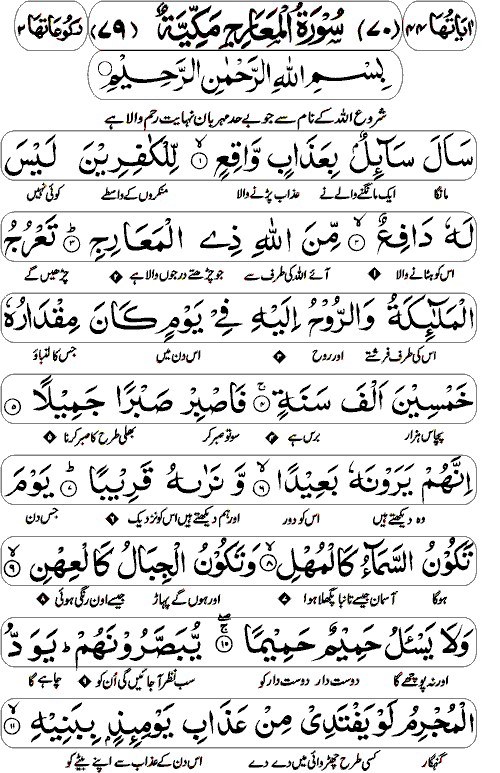 اٰیَاتُهَا ۴۴ (۷۰) سُوْرَةُ الْمَعَارِجِ مَكِّيَّةٌ (۷۹) رُكُوْعَاتُهَا ۲
بِسْمِ اللهِ الرَّحْمٰنِ الرَّحِيْمِ
شروع اللہ کے نام سے جو بے حد مہربان نہایت رحم والا ہے
سَاَلَ سَآئِلٌۢ بِعَذَابٍ وَّاقِعٍ ۙ۱ لِّلْكٰفِرِيْنَ لَيْسَ
مانگا ایک مانگنے والے نے عذاب پڑنے والا منکروں کے واسطے کوئی نہیں
لَهٗ دَافِعٌ ۙ۲ مِّنَ اللهِ ذِي الْمَعَارِجِ ؕ۳ تَعْرُجُ
اس کو ہٹانے والا ۱ آئے اللہ کی طرف سے جو چڑھتے درجوں والا ہے ۲ چڑھیں گے
الْمَلٰٓئِكَةُ وَالرُّوْحُ اِلَيْهِ فِيْ يَوْمٍ كَانَ مِقْدَارُهٗ
اس کی طرف فرشتے اور روح ۳ اس دن میں جس کا لنباؤ
خَمْسِيْنَ اَلْفَ سَنَةٍ ۚ۴ فَاصْبِرْ صَبْرًا جَمِيْلًا ۵
پچاس ہزار برس ہے ۴ سو تو صبر کر بھلی طرح کا صبر کرنا ۵
اِنَّهُمْ يَرَوْنَهٗ بَعِيْدًا ۙ۶ وَّنَرٰىهُ قَرِيْبًا ؕ۷ يَوْمَ
وہ دیکھتے ہیں اس کو دور اور ہم دیکھتے ہیں اس کو نزدیک ۶ جس دن
تَكُوْنُ السَّمَآءُ كَالْمُهْلِ ۙ۸ وَتَكُوْنُ الْجِبَالُ كَالْعِهْنِ ۙ۹
ہوگا آسمان جیسے تانبا پگھلا ہوا ۷ اور ہوں گے پہاڑ جیسے اون رنگی ہوئی ۸
وَلَا يَسْـَٔلُ حَمِيْمٌ حَمِيْمًا ۚۖ۱۰ يُّبَصَّرُوْنَهُمْ ؕ يَوَدُّ
اور نہ پوچھے گا دوست دار دوست دار کو سب نظر آجائیں گی اُن کو چاہے گا
الْمُجْرِمُ لَوْ يَفْتَدِيْ مِنْ عَذَابِ يَوْمِئِذٍۭ بِبَنِيْهِ ۙ۱۱
گنہگار کسی طرح چھڑوائی میں دے دے اس دن کے عذاب سے اپنے بیٹے کو